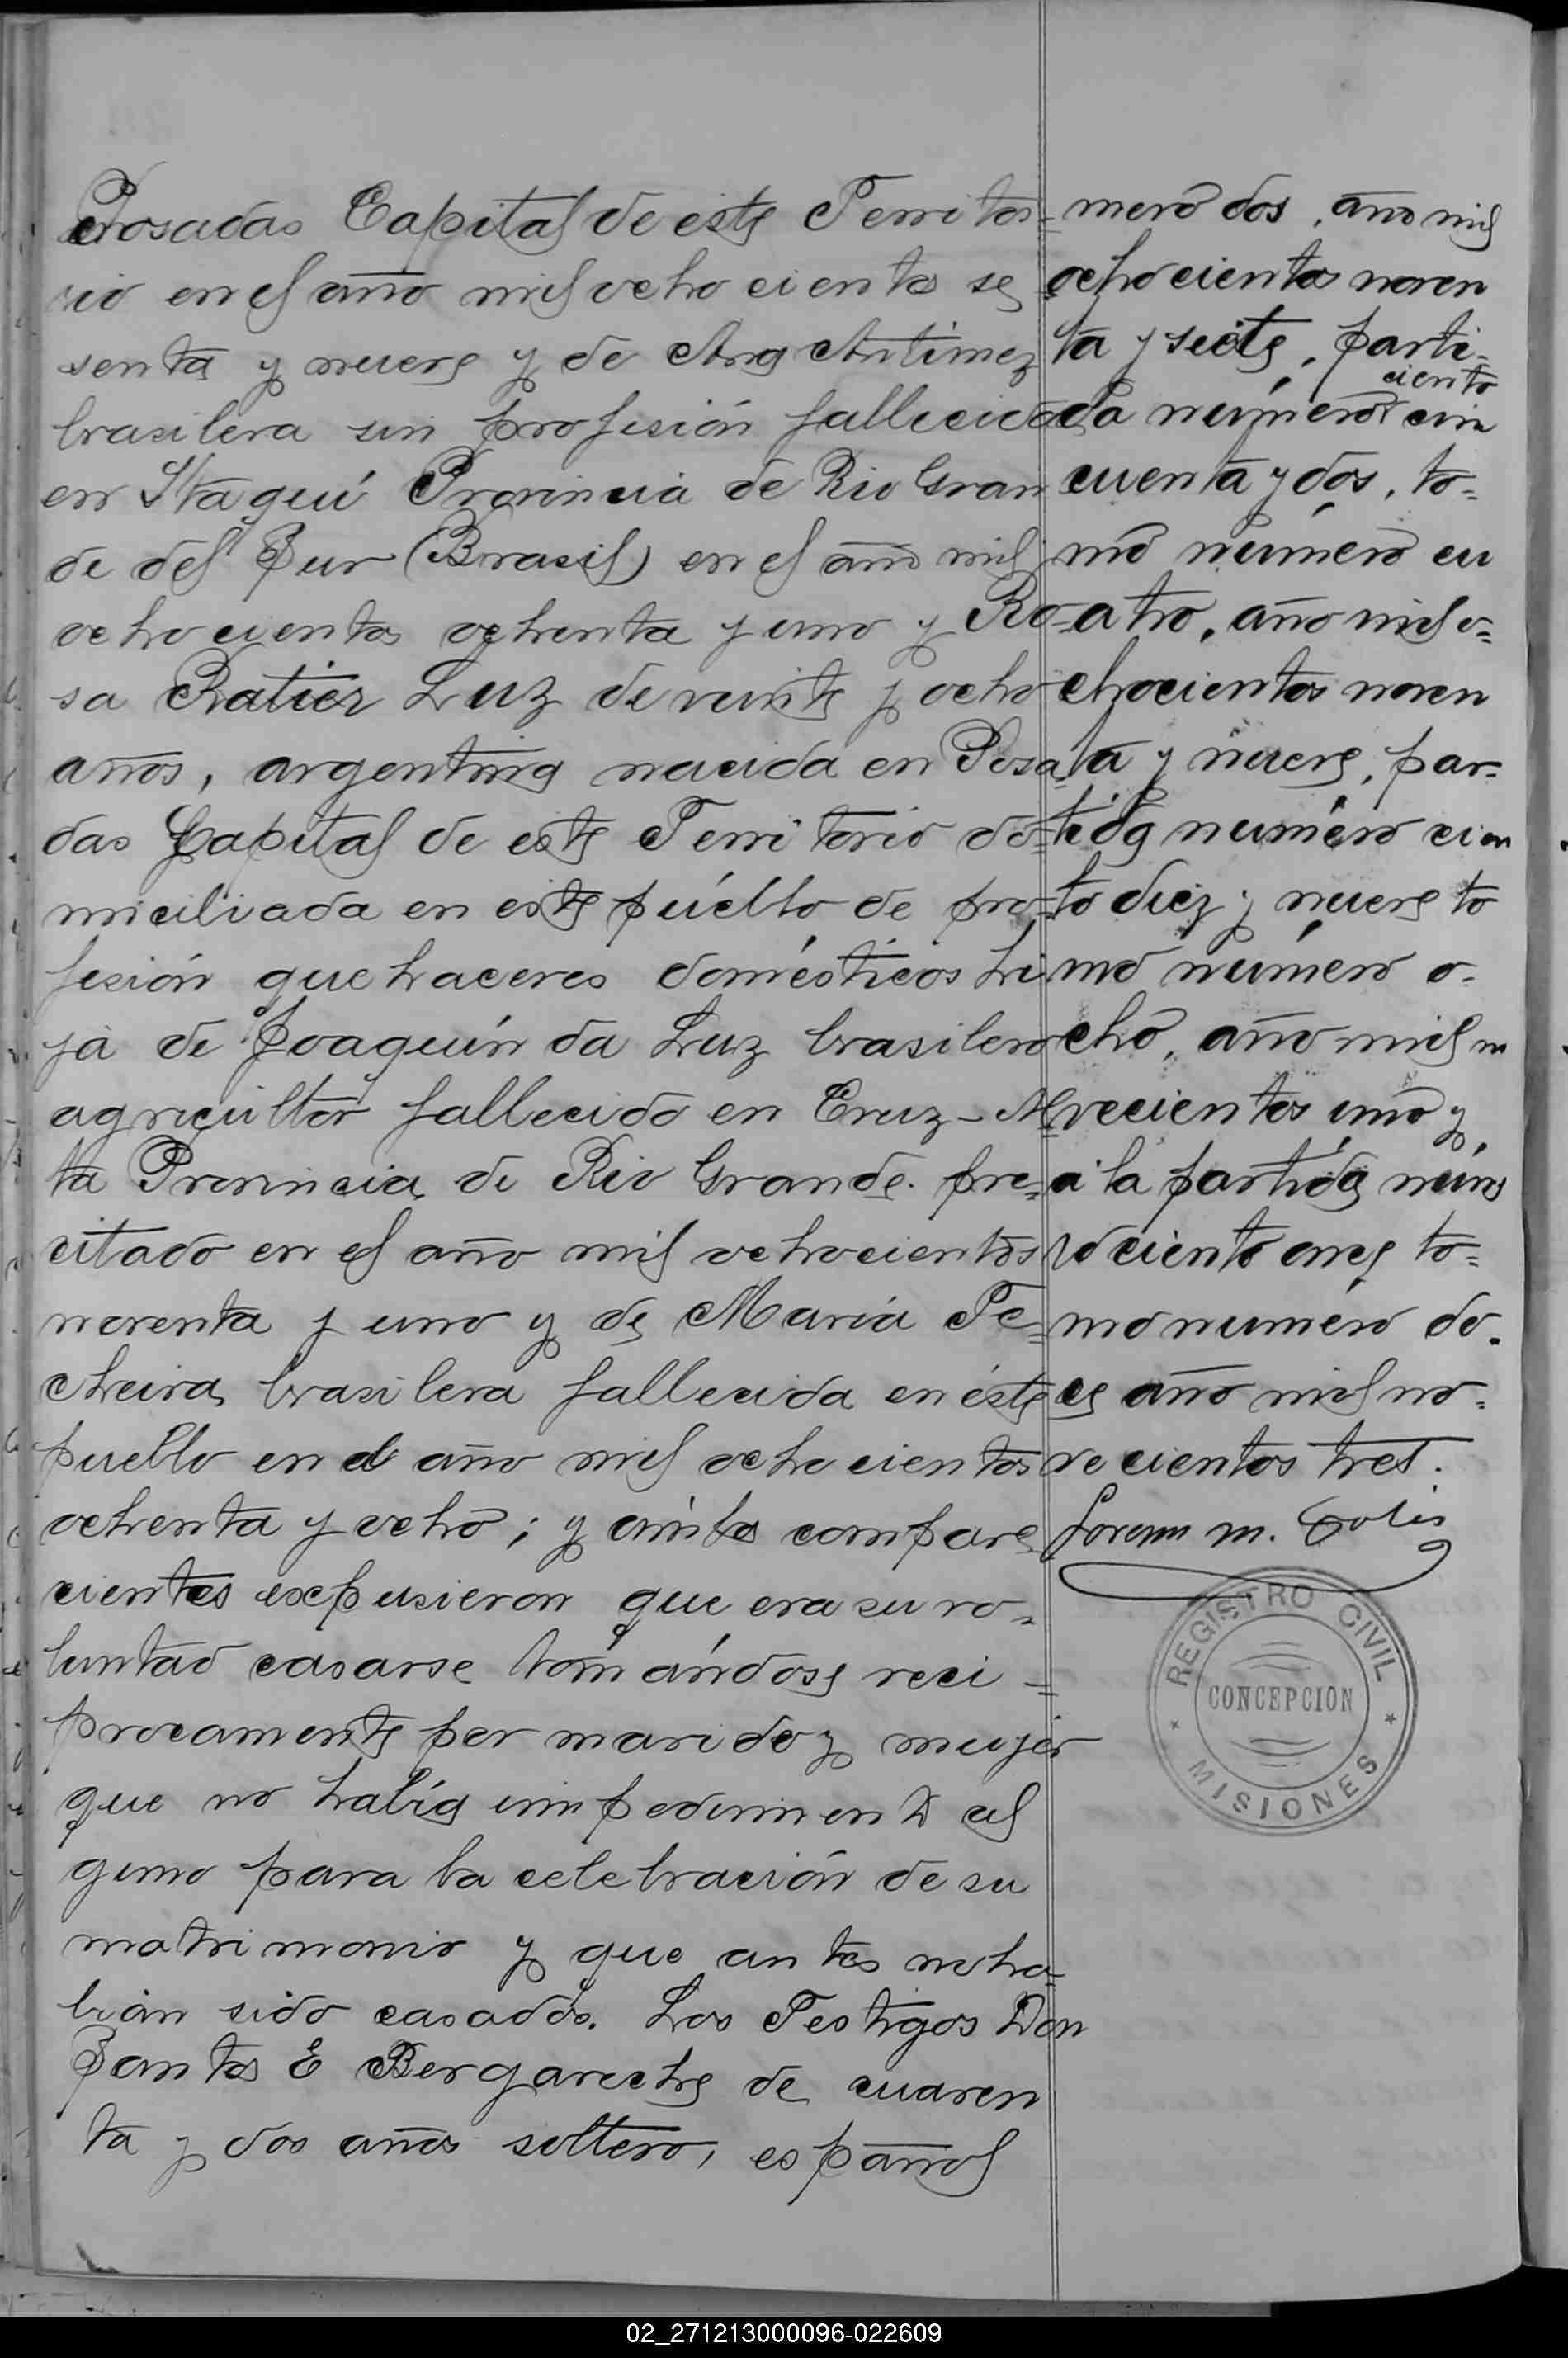 Posadas Capital de este Territo=
rio en el año mil ochocientos se
senta y nueve y de Ana Antimez
brasilera sin profesión fallecida
en Itaquí Provincia de Rio Gran
de del Sur (Brasil) en el año mil
ochocientos ochenta y uno y Ro=
sa Ratier Luz de veinte y ocho
años, argentina nacida en Posa
das Capital de este Territorio do=
miciliada en este pueblo de pro=
fesión quehaceres domésticos hi
ja de Joaquín da Luz brasilero
agricultor fallecido en Cruz-Al
ta Provincia de Rio Grande pre=
citado en el año mil ochocientos
noventa y uno y de María Te=
cheira brasilera fallecida en éste
pueblo en el año mil ochocientos
ochenta y ocho; y ambos compare
cientes expusieron que era su vo=
luntad casarse tomándose reci=
procamente por marido y mujer
que no había impedimento al
guno para la celebración de su
matrimonio y que antes no ha=
bían sido casados. Los Testigos Don
Santos E Bergareche de cuaren
ta y dos años soltero, español
mero dos, año mil
ochocientos noven
ta y siete, parti=
ciento
da número cin
cuenta y dos, to=
mo número cu
atro, año mil o=
chocientos noven
ta y nueve, par=
tida número cien
to diez y nueve to
mo número o=
cho, año mil no
vecientos uno y
a la partida núme
ro ciento once to=
mo numéro do=
ce año mil no=
vecientos tres.
REGISTRO CIVIL
CONCEPCION
MISIONES
02_271213000096-022609